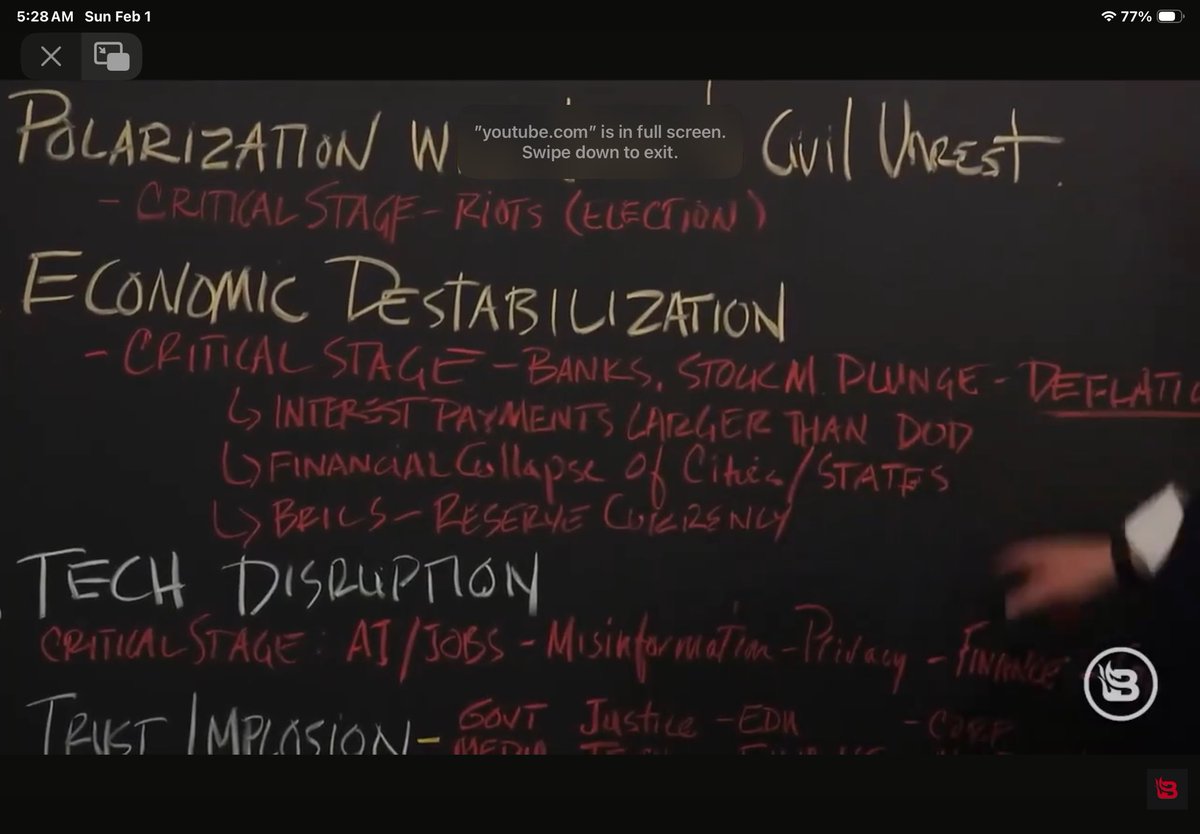 5:28 AM Sun Feb 1
77%
POLARIZATION W CIVIL UNREST.
"youtube.com" is in full screen.
Swipe down to exit.
- CRITICAL STAGE - RIOTS (ELECTION)
ECONOMIC DESTABILIZATION
- CRITICAL STAGE - BANKS, STOCK M. PLUNGE - DEFLATIO
↳ INTEREST PAYMENTS LARGER THAN DOD
↳ FINANCIAL Collapse of Cities/STATES
↳ BRICS - RESERVE CURRENCY
TECH DISRUPTION
CRITICAL STAGE: AI/JOBS - Misinformation - Privacy - FINANCE
TRUST IMPLOSION - GOVT Justice - EDU - CORP
MEDIA TECH